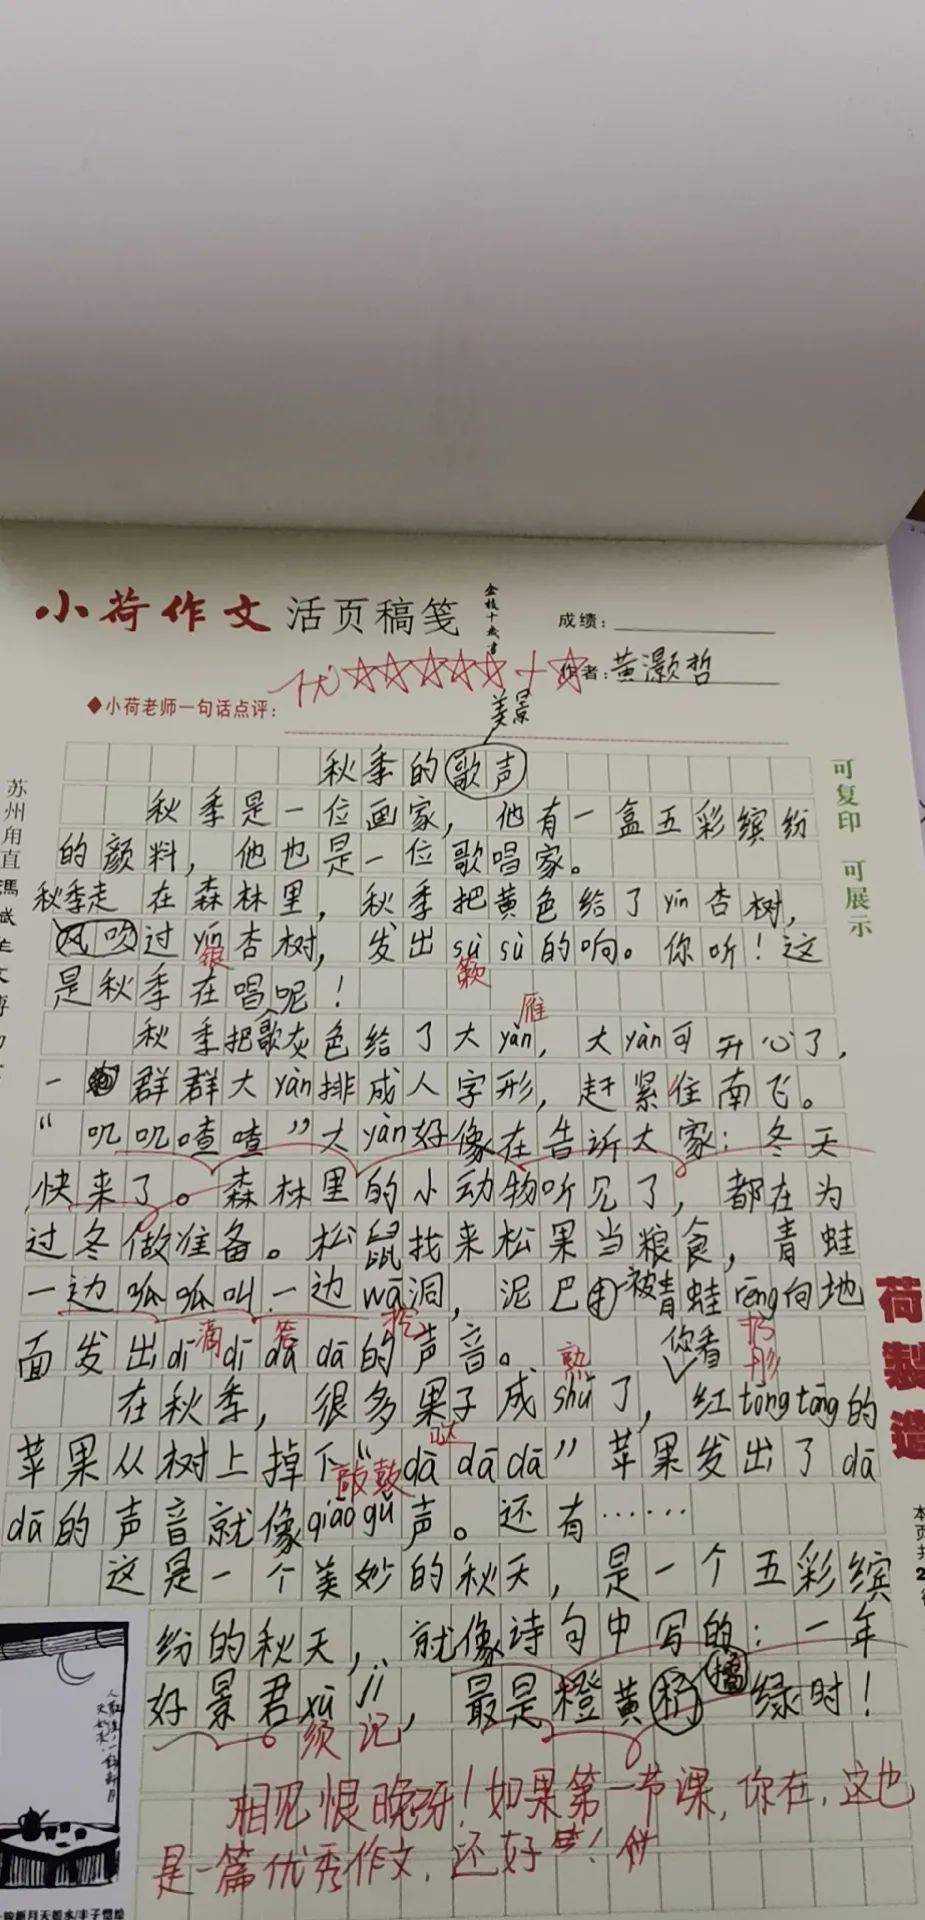 小荷作文 活页稿笺
成绩：
优 作者：黄灏哲
◆小荷老师一句话点评：
美景
秋季的歌声
秋季是一位画家，他有一盒五彩缤纷
的颜料，他也是一位歌唱家。
秋季走在森林里，秋季把黄色给了yín杏树，
风吹过yín杏树，发出sù sù的响。你听！这
银 簌
是秋季在唱歌呢！
雁
秋季把灰色给了大yàn，大yàn可开心了，
一群群大yàn排成人字形，赶紧往南飞。
“叽叽喳喳”大yàn好像在告诉大家：冬天
快来了。森林里的小动物听见了，都在为
过冬做准备。松鼠找来松果当粮食，青蛙
一边呱呱叫一边wā洞，泥巴被青蛙rēng向地
挖 扔
面发出dī dī dā dā的声音。
滴 答 熟 你看 彤
在秋季，很多果子成shú了，红tōng tōng的
苹果从树上掉下“dā dā dā”苹果发出了dā
哒
敲鼓
dā的声音就像qiāo gǔ声。还有……
这是一个美妙的秋天，是一个五彩缤
纷的秋天，就像诗句中写的：一年
好景君xū jì，最是橙黄橘绿时！
须 记
相见恨晚呀！如果第一节课，你在，这也
是一篇优秀作文，还好
可复印 可展示
苏州甪直
荷製造